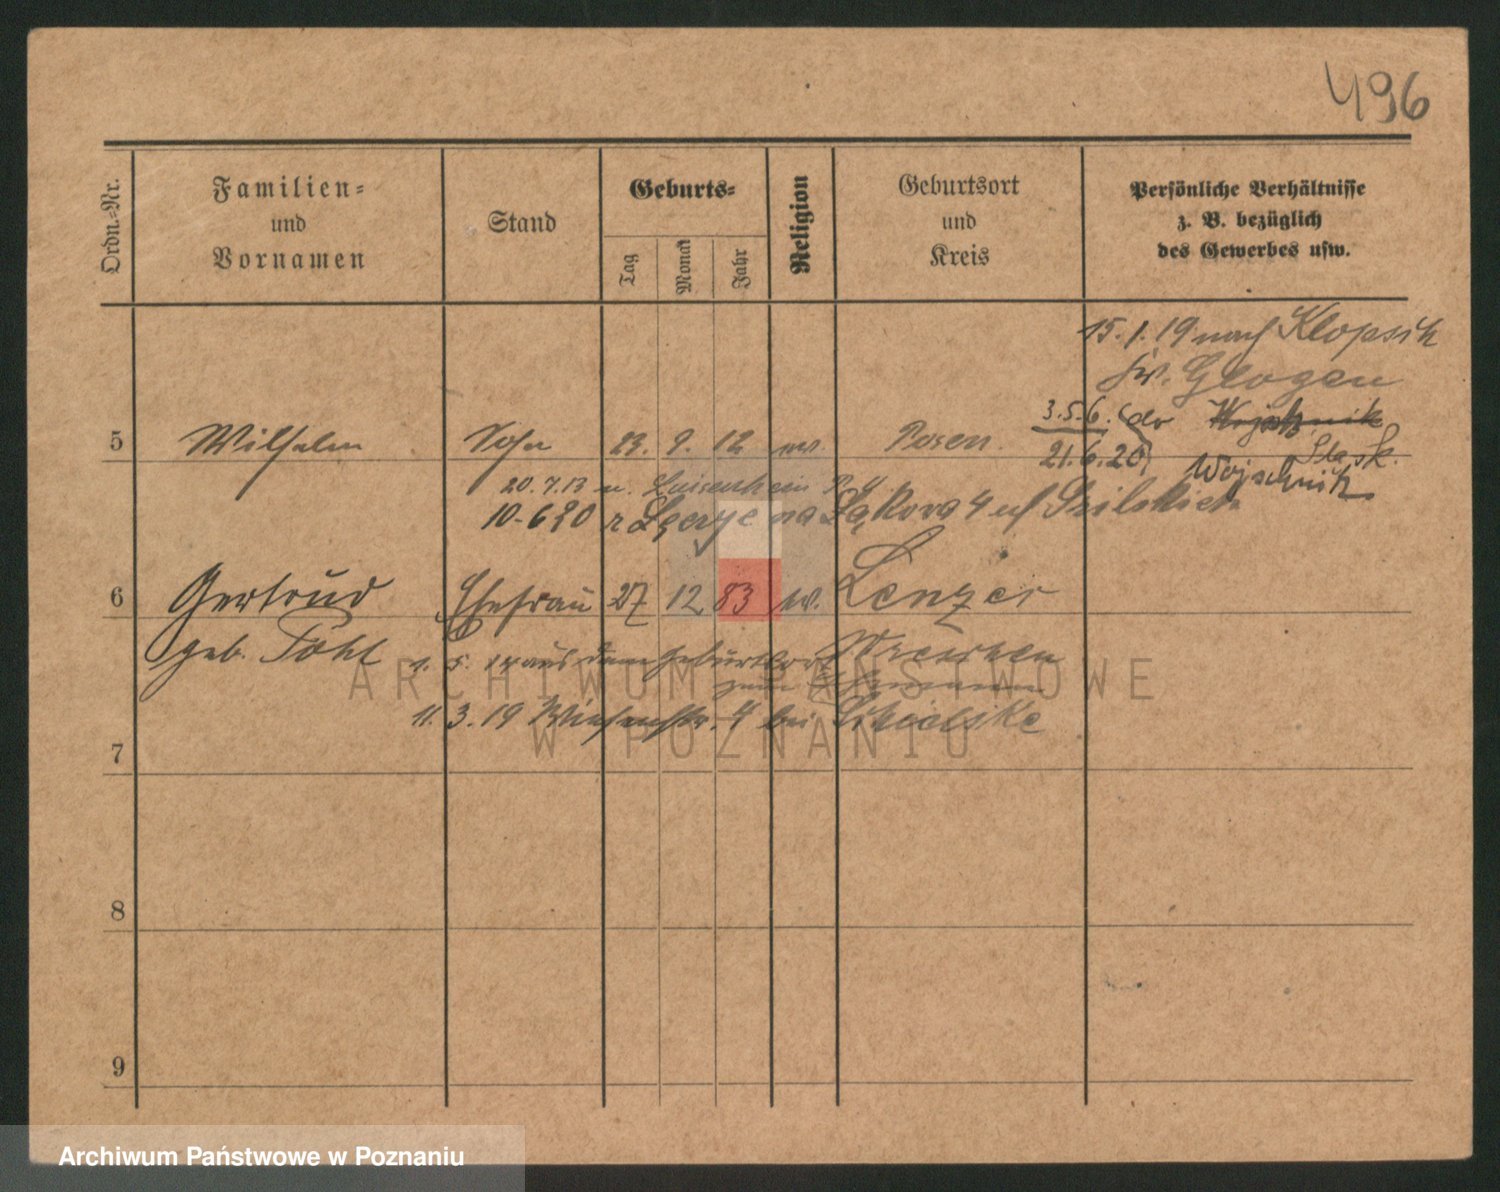 496
Ordn.-Nr.
Familien-
und
Vornamen
Stand
Geburts-
Tag
Monat
Jahr
Religion
Geburtsort
und
Kreis
Persönliche Verhältnisse
z. B. bezüglich
des Gewerbes usw.
15. 1. 19 nach Klopsch
Kr. Glogau
3.5.6.
21.6.20
5 Wilhelm Sohn 23. 9. 12 ev. Posen.
Wojschnik
20.7.13 Luisenhain
10-620 z na 4
6 Gertrud Ehefrau 27 12 83 ev. Lenzer
geb. Pohl 1. 5. aus dem Geburtsort
zum Ehemann
11. 3. 19 Wiesenstr. 4 bei
7
8
9
ARCHIWUM PAŃSTWOWE
W POZNANIU
Archiwum Państwowe w Poznaniu